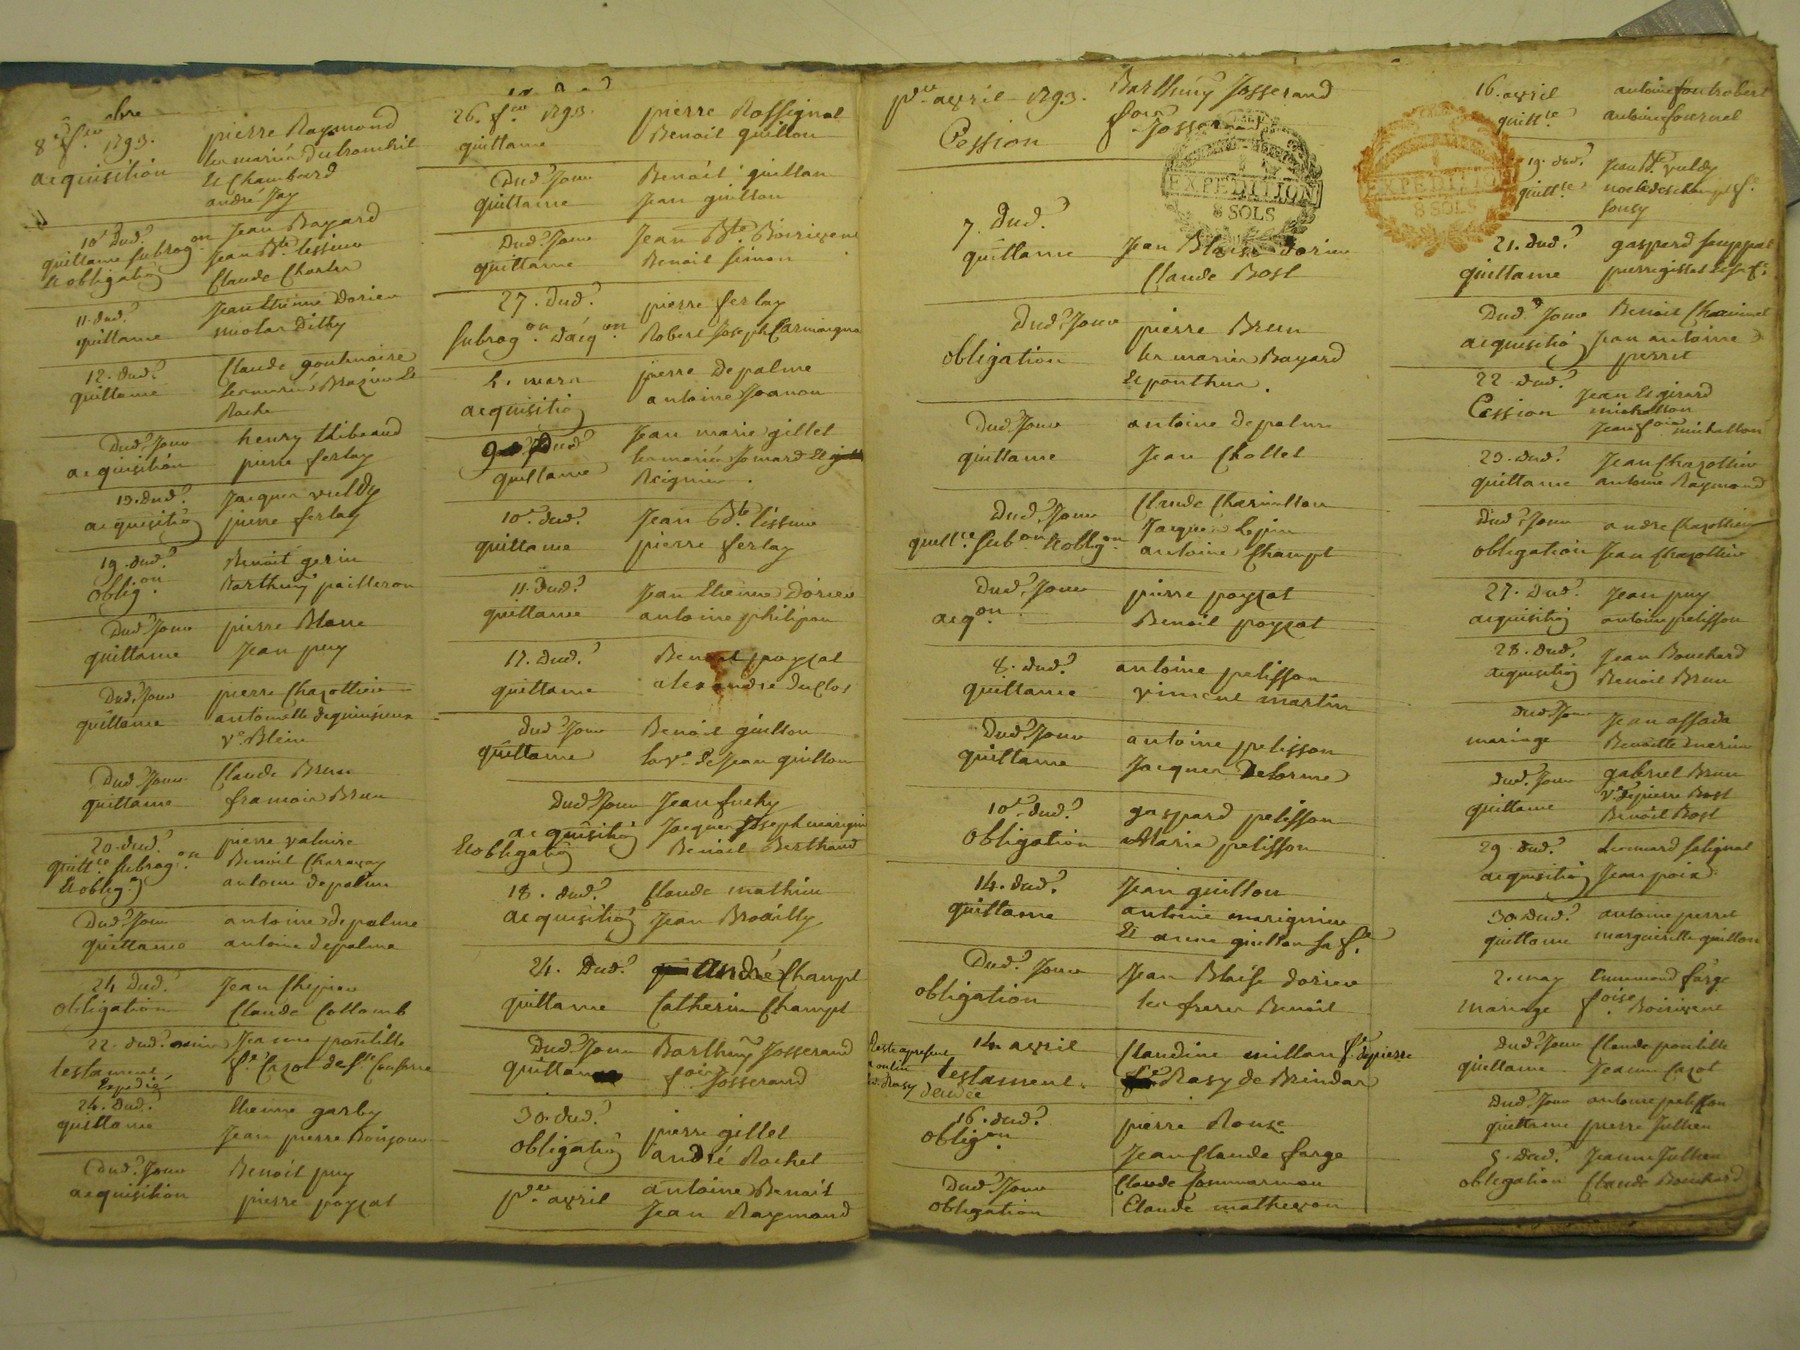 8 1793.
acquisition
pierre Raymond
les mariés
Et Chambard
andré Jay
10e Dud.
quittance subrog.on
Et obligatio
Jean Bayard
Jean Bte tissieur
Claude Charles
11. dud.
quittance
Jean Etienne Dorieu
nicolas
12. dud.
quittance
Claude
les mariés Brazier Et
Roche
Dud. Jour
acquisition
henry thibaud
pierre ferlay
13. Dud.
acquisitio
Jacques vieldy
pierre ferlay
19. dud.
Oblig.on
Benoit gerin
Barthmy pailleron
Dud. Jour
quittance
pierre Blanc
Jean puy
Dud. Jour
quittance
pierre Chazottier
antoinette dequinsieux
ve Blein
Dud. Jour
quittance
Claude Brun
francois Brun
20. dud.
quitt.ce subrog.on
Et oblig.
pierre
Benoit Charavay
antoine depalme
Dud. Jour
quittance
antoine depalme
antoine depalme
24 Dud.
obligation
Jean
Claude Collomb
22. dud.
testament
Expedié
Jeanne pontille
24. Dud.
quittance
Etienne garby
Jean pierre Bonjour
Dud. Jour
acquisition
Benoit puy
pierre poyzat
26. 1793.
quittance
pierre Rossignol
Benoit guillon
Dud. Jour
quittance
Benoit guillon
Jean guillon
Dud. Jour
quittance
Jean Bte Boirivent
Benoit Simon
27. Dud.
subrog.on dacq.on
pierre ferlay
Robert Joseph
mars
acquisitio
pierre Depalme
antoine Joanon
Dud.
quittance
Jean marie gillet
les mariés Jomard Et
Reignier.
10e. dud.
quittance
Jean Bte. tissieur
pierre ferlay
11. Dud.
quittance
Jean Etienne Dorieu
antoine philipon
17. Dud.
quittance
Benoit poyzat
alexandre duclos
dud. Jour
quittance
Benoit guillon
la ve. de Jean guillon
Dud. Jour
acquisitio
Et obligatio
Jean
Jacques Joseph
Benoit Berthaud
18. dud.
acquisitio
Claude mathieu
Jean Brouilly
24. Dud.
quittance
andré Champt
Catherine Champt
Dud. Jour
quittance
Barthmy Josserand
fois Josserand
30. dud.
obligatio
pierre gillet
andré Rochet
per avril
antoine Benoit
Jean Raymond
per avril 1793.
Cession
Barthmy Josserand
fois Josserand
EXPEDITION
8 SOLS
7. Dud.
quittance
Jean Blaise Dorieu
Claude Bost
Dud. Jour
obligation
pierre Brun
les mariés Bayard
Et ponthus.
Dud. Jour
quittance
antoine depalme
Jean Chollet
Dud. Jour
quitt.ce sub.on Et oblig.on
Claude
Jacques
antoine Champt
Dud. Jour
acq.on
pierre poyzat
Benoit poyzat
8. dud.
quittance
antoine pelisson
vincent martin
Dud. Jour
quittance
antoine pelisson
Jacques Delorme
10e. dud.
obligation
gaspard pelisson
Marie pelisson
14. dud.
quittance
Jean guillon
antoine marignier
Et anne guillon sa fe
Dud. Jour
obligation
Jean Blaise dorieu
les freres Benoit
14 avril
testament
Claudine millan fe de pierre
Rasy de Brindas
16. dud.
oblig.on
pierre Rouze
Jean Claude farge
Dud. Jour
obligation
Claude
Claude mathevon
16. avril
quitt.ce
antoine fontrobert
antoine fournel
EXPEDITION
8 SOLS
19. dud.
quitt.ce
Jean Bte vieldy
21. Dud.
quittance
gaspard
Dud. Jour
acquisitio
Benoit
Jean antoine
perret
22 dud.
Cession
Jean Et girard
michallon
Jean fois michallon
23. dud.
quittance
Jean Chazottier
antoine Raymond
Dud. Jour
obligation
andre Chazottier
Jean Chazottier
27. Dud.
acquisitio
Jean puy
antoine pelisson
28. dud.
acquisitio
Jean Bouchard
Benoit Brun
dud. Jour
mariage
Jean
Benoitte
dud. Jour
quittance
gabriel Brun
ve de pierre Bost
Benoit Bost
29. dud.
acquisitio
Leonard
Jean
30. Dud.
quittance
antoine perret
marguerite guillon
2. may
mariage
farge
foise Boirivent
dud. Jour
quittance
Claude pontille
Jeanne Cazot
Dud. Jour
quittance
antoine pelisson
pierre Jullien
5. Dud.
obligation
Jeanne Jullien
Claude Bouchard